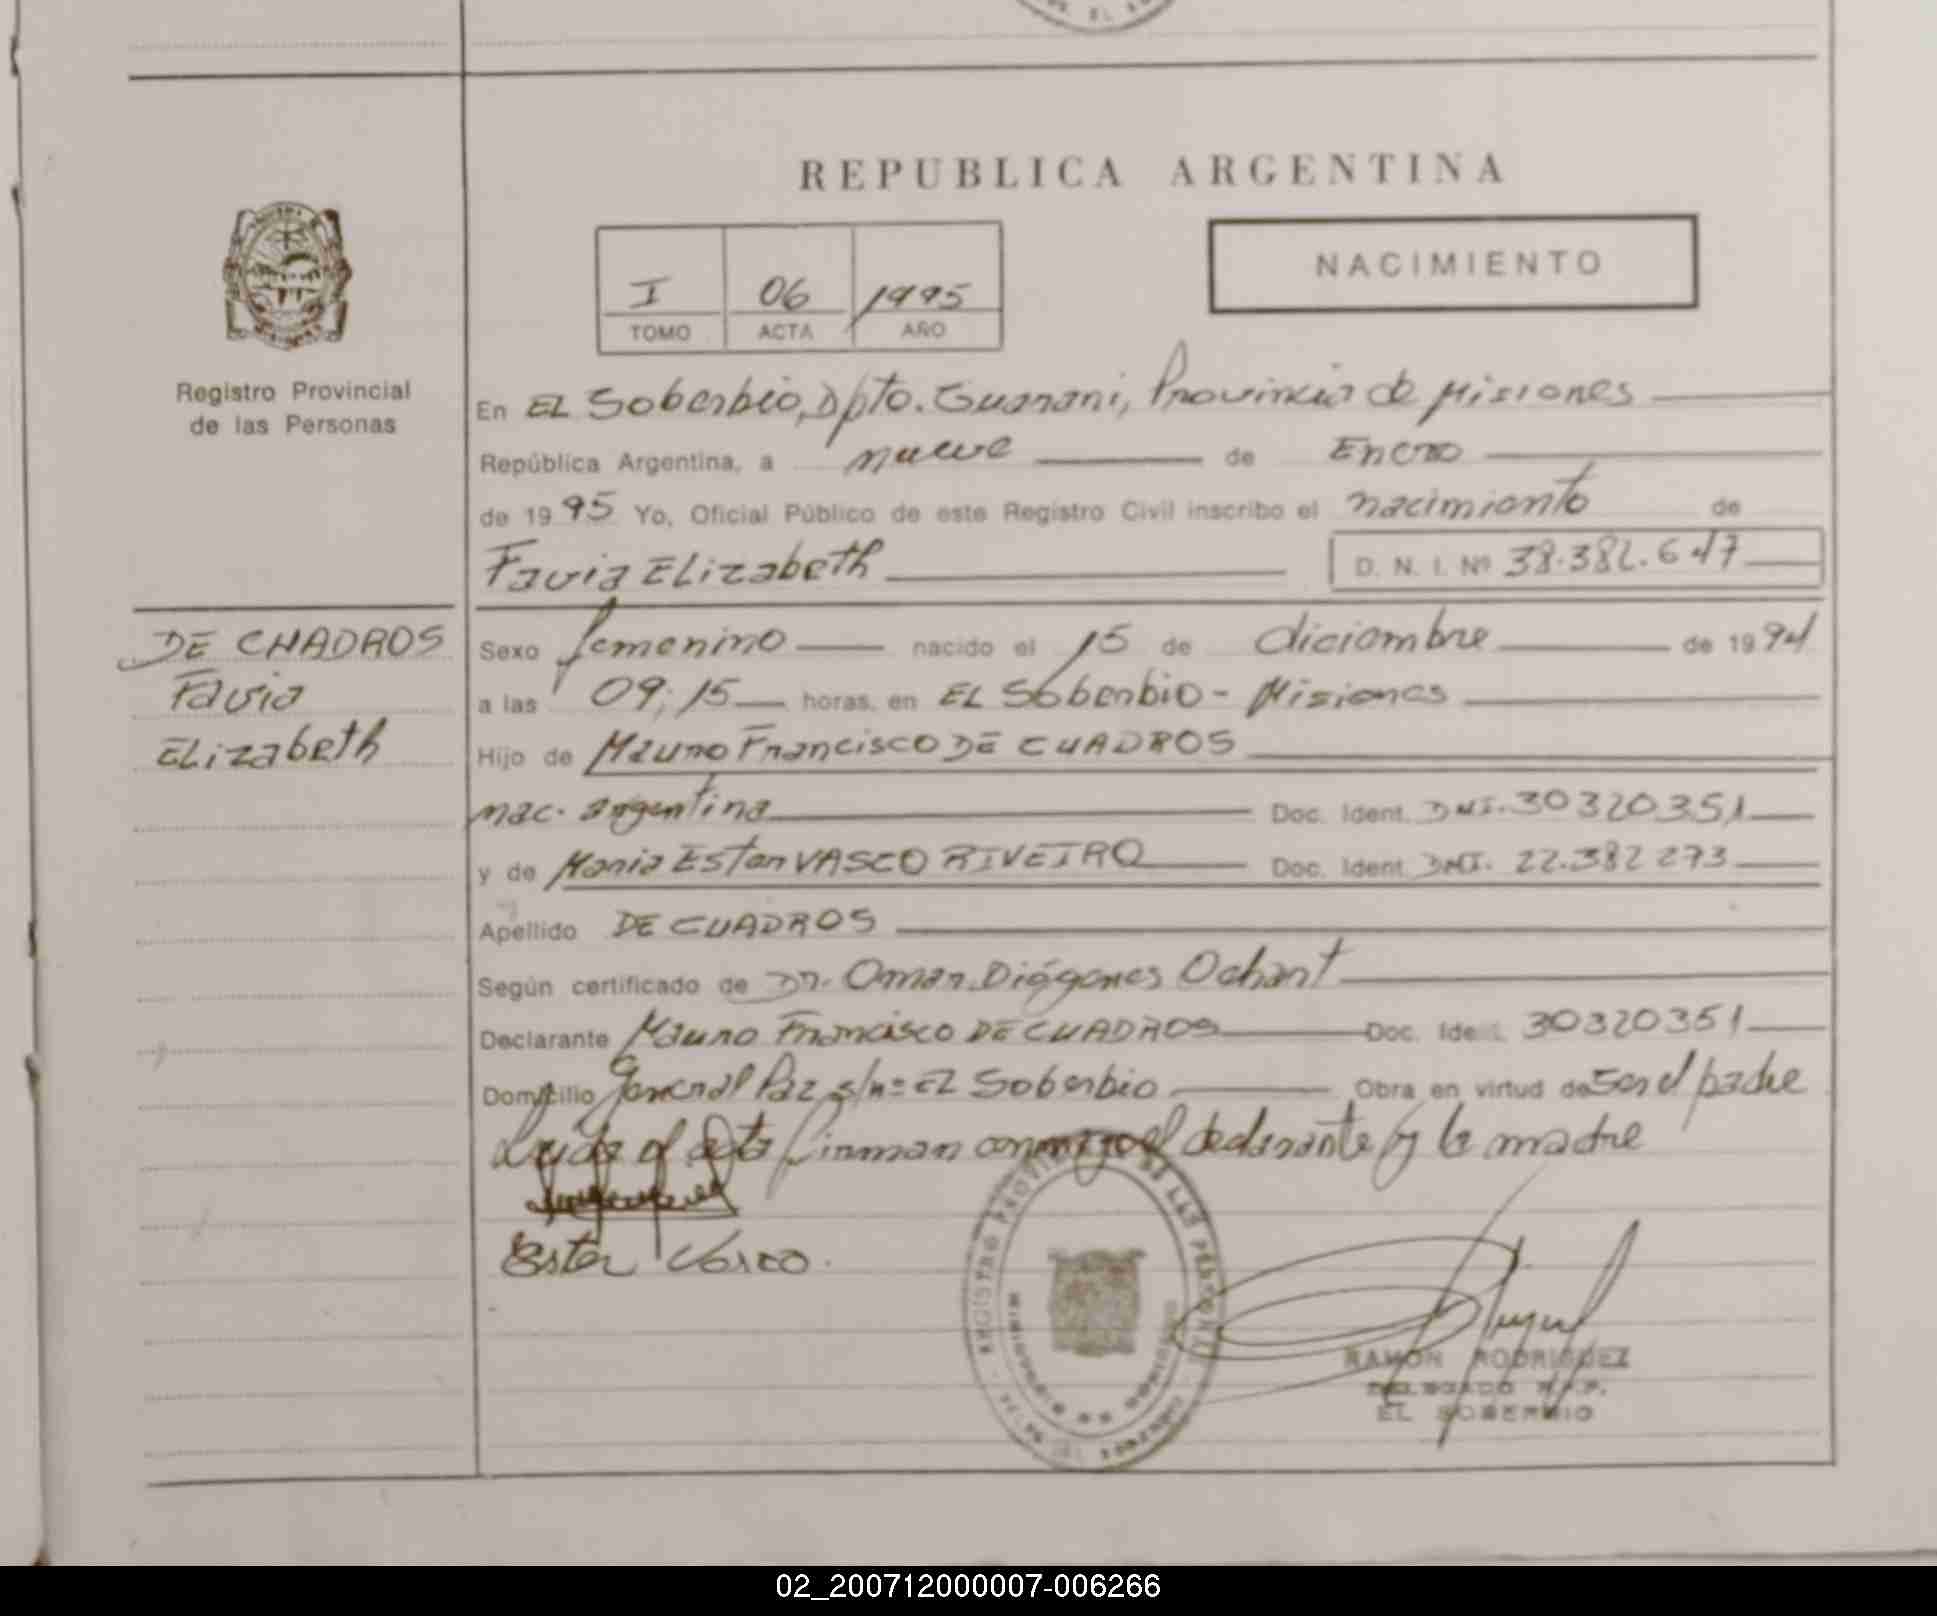 REPUBLICA ARGENTINA
I 06 1995
TOMO ACTA AÑO
NACIMIENTO
Registro Provincial
de las Personas
En EL Soberbio, Dpto. Guarani, Provincia de Misiones
República Argentina, a nueve de Enero
de 1995 Yo, Oficial Público de este Registro Civil inscribo el nacimiento de
Favia ELizabeth D. N. I. Nº 38.382.647
DE CUADROS
Favia
ELizabeth
Sexo femenino nacido el 15 de diciembre de 1994
a las 09;15 horas, en EL Soberbio - Misiones
Hijo de Mauro Francisco DE CUADROS
nac. argentina Doc. Ident. DNI. 30320351
y de Maria Ester VASCO RIVEIRO Doc. Ident. DNI. 22.382 273
Apellido DE CUADROS
Según certificado de Dr. Omar Diógenes Ochant
Declarante Mauro Francisco DE CUADROS Doc. Ident. 30320351
Domicilio General Paz s/nº EL Soberbio Obra en virtud de ser el padre
Leida el acta firman conmigo el declarante y la madre
Ester Vasco.
REGISTRO PROVINCIAL DE LAS PERSONAS
MINISTERIO DE GOBIERNO
RAMON RODRIGUEZ
DELEGADO R.P.P.
EL SOBERBIO
02_200712000007-006266